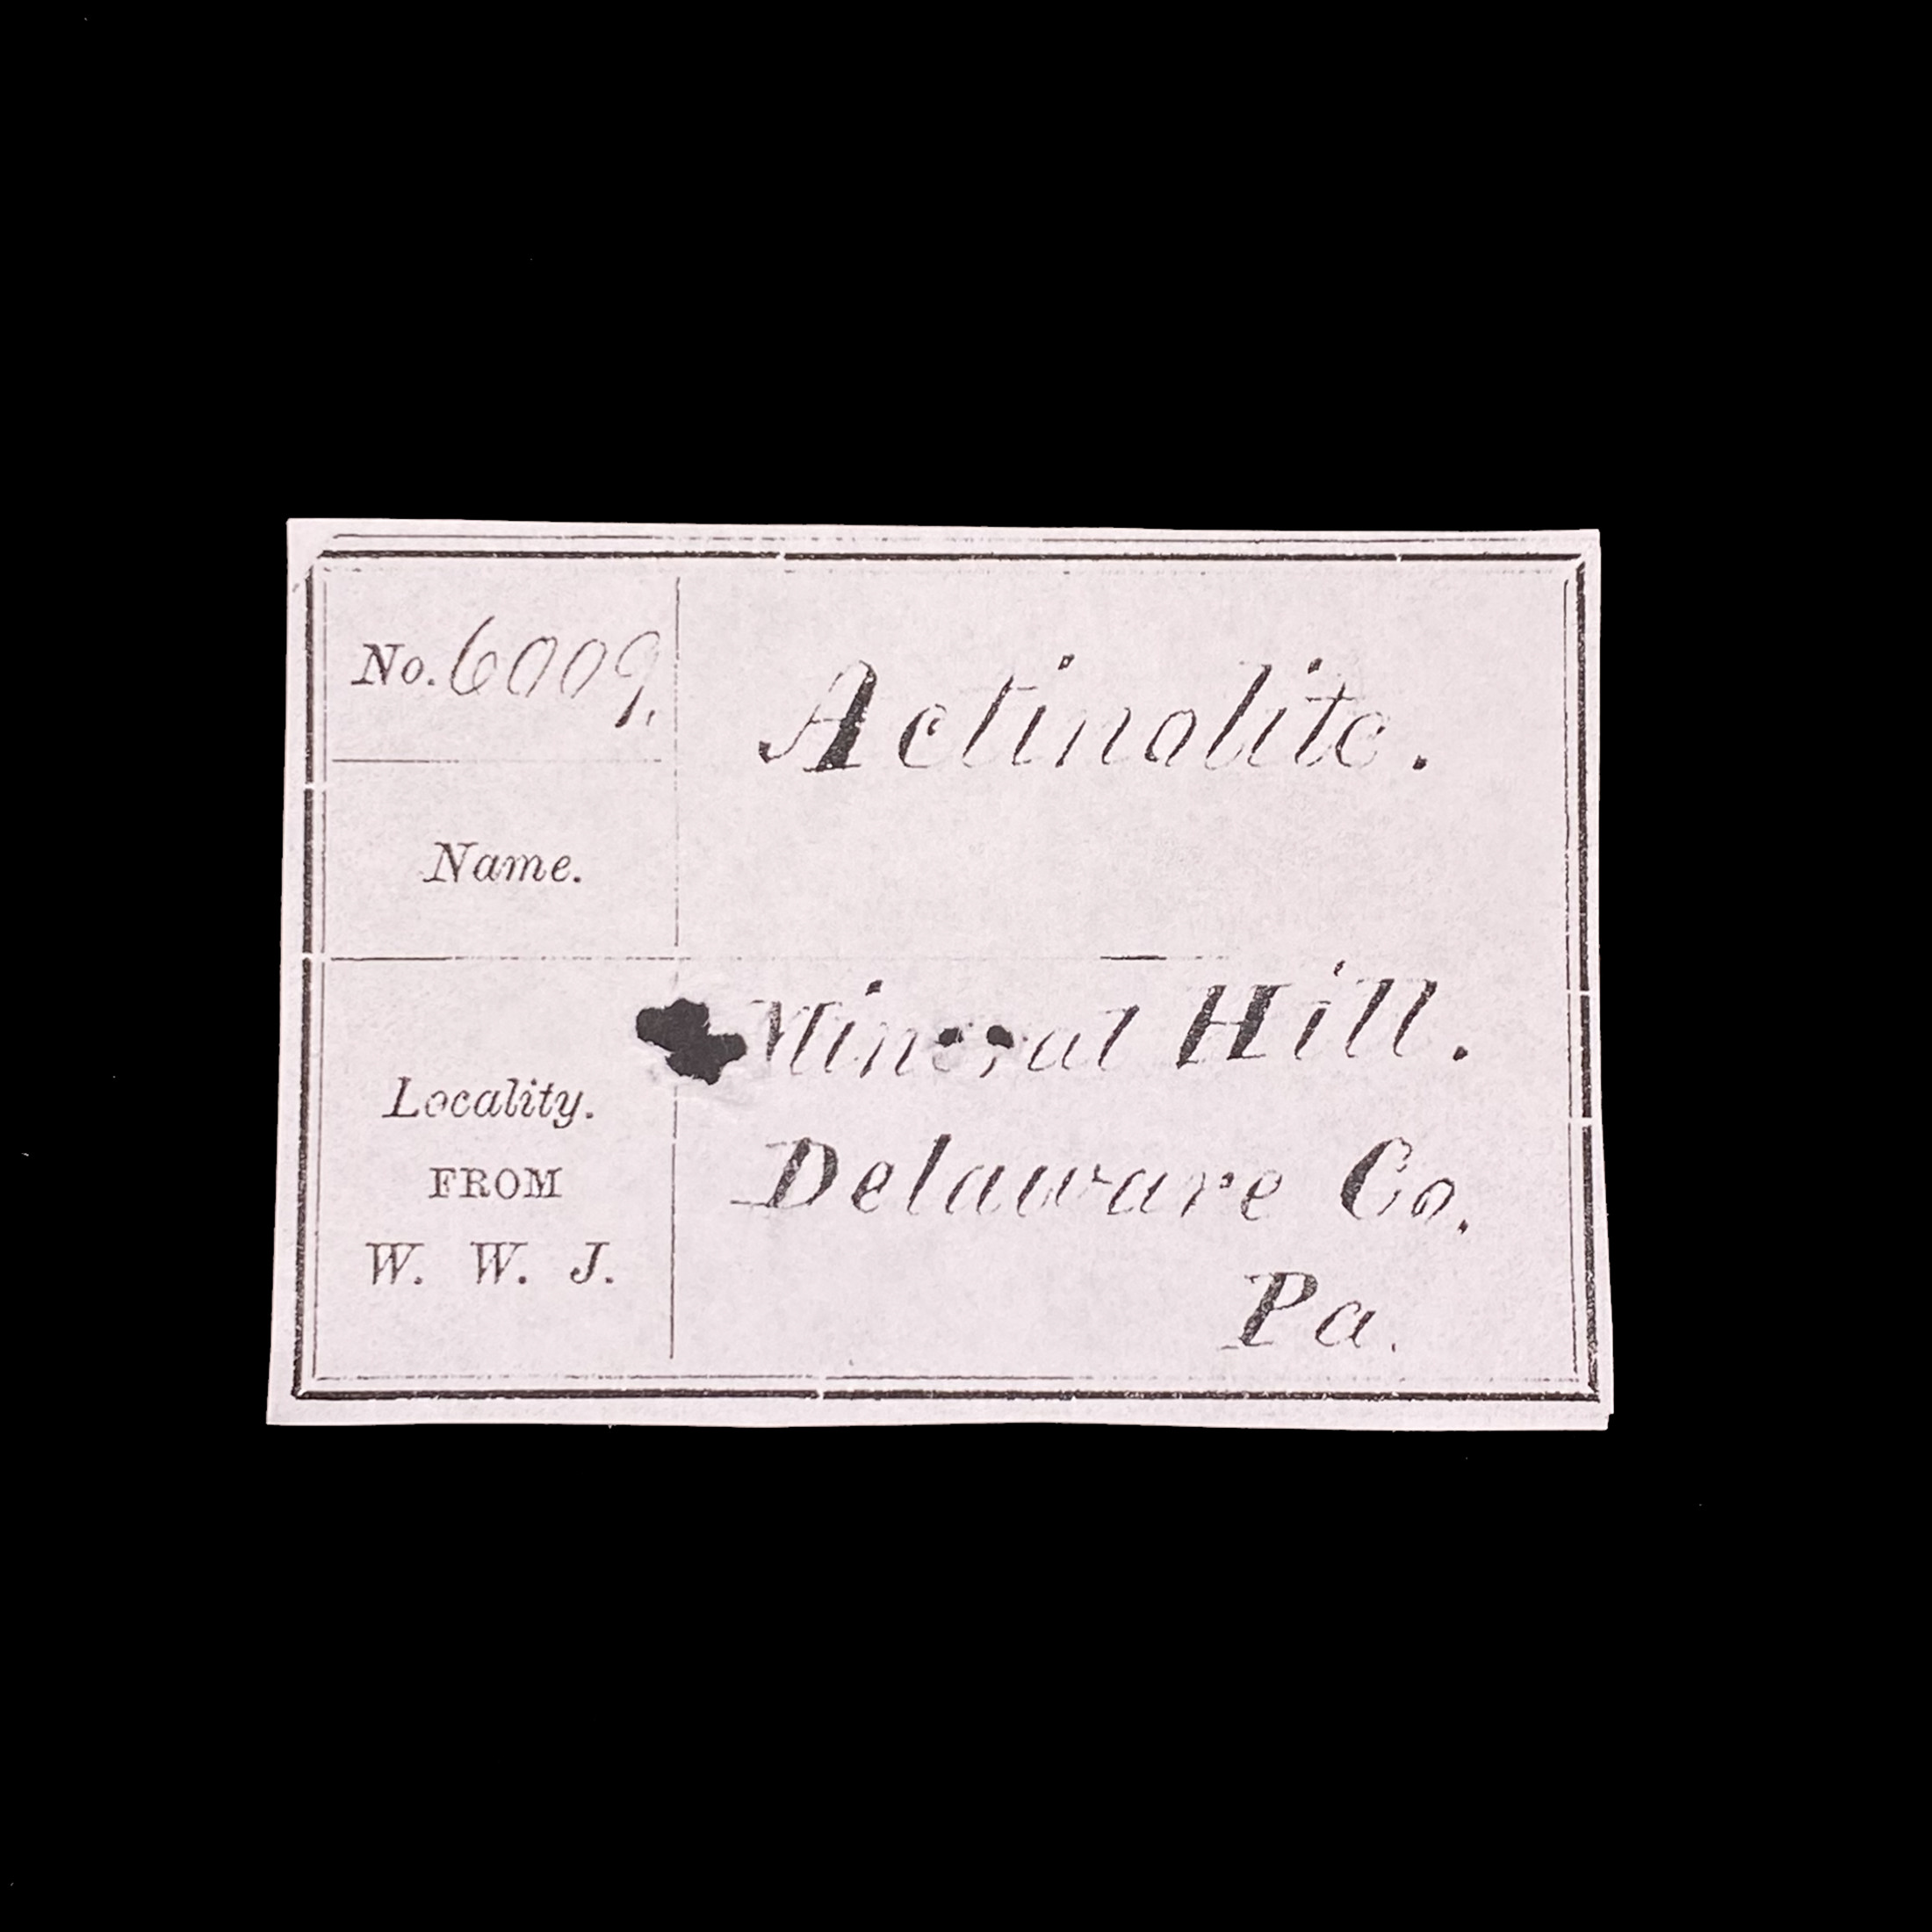 No. 6009.
Actinolite.
Name.
Mineral Hill.
Locality.
Delaware Co.
FROM
W. W. J.
Pa.